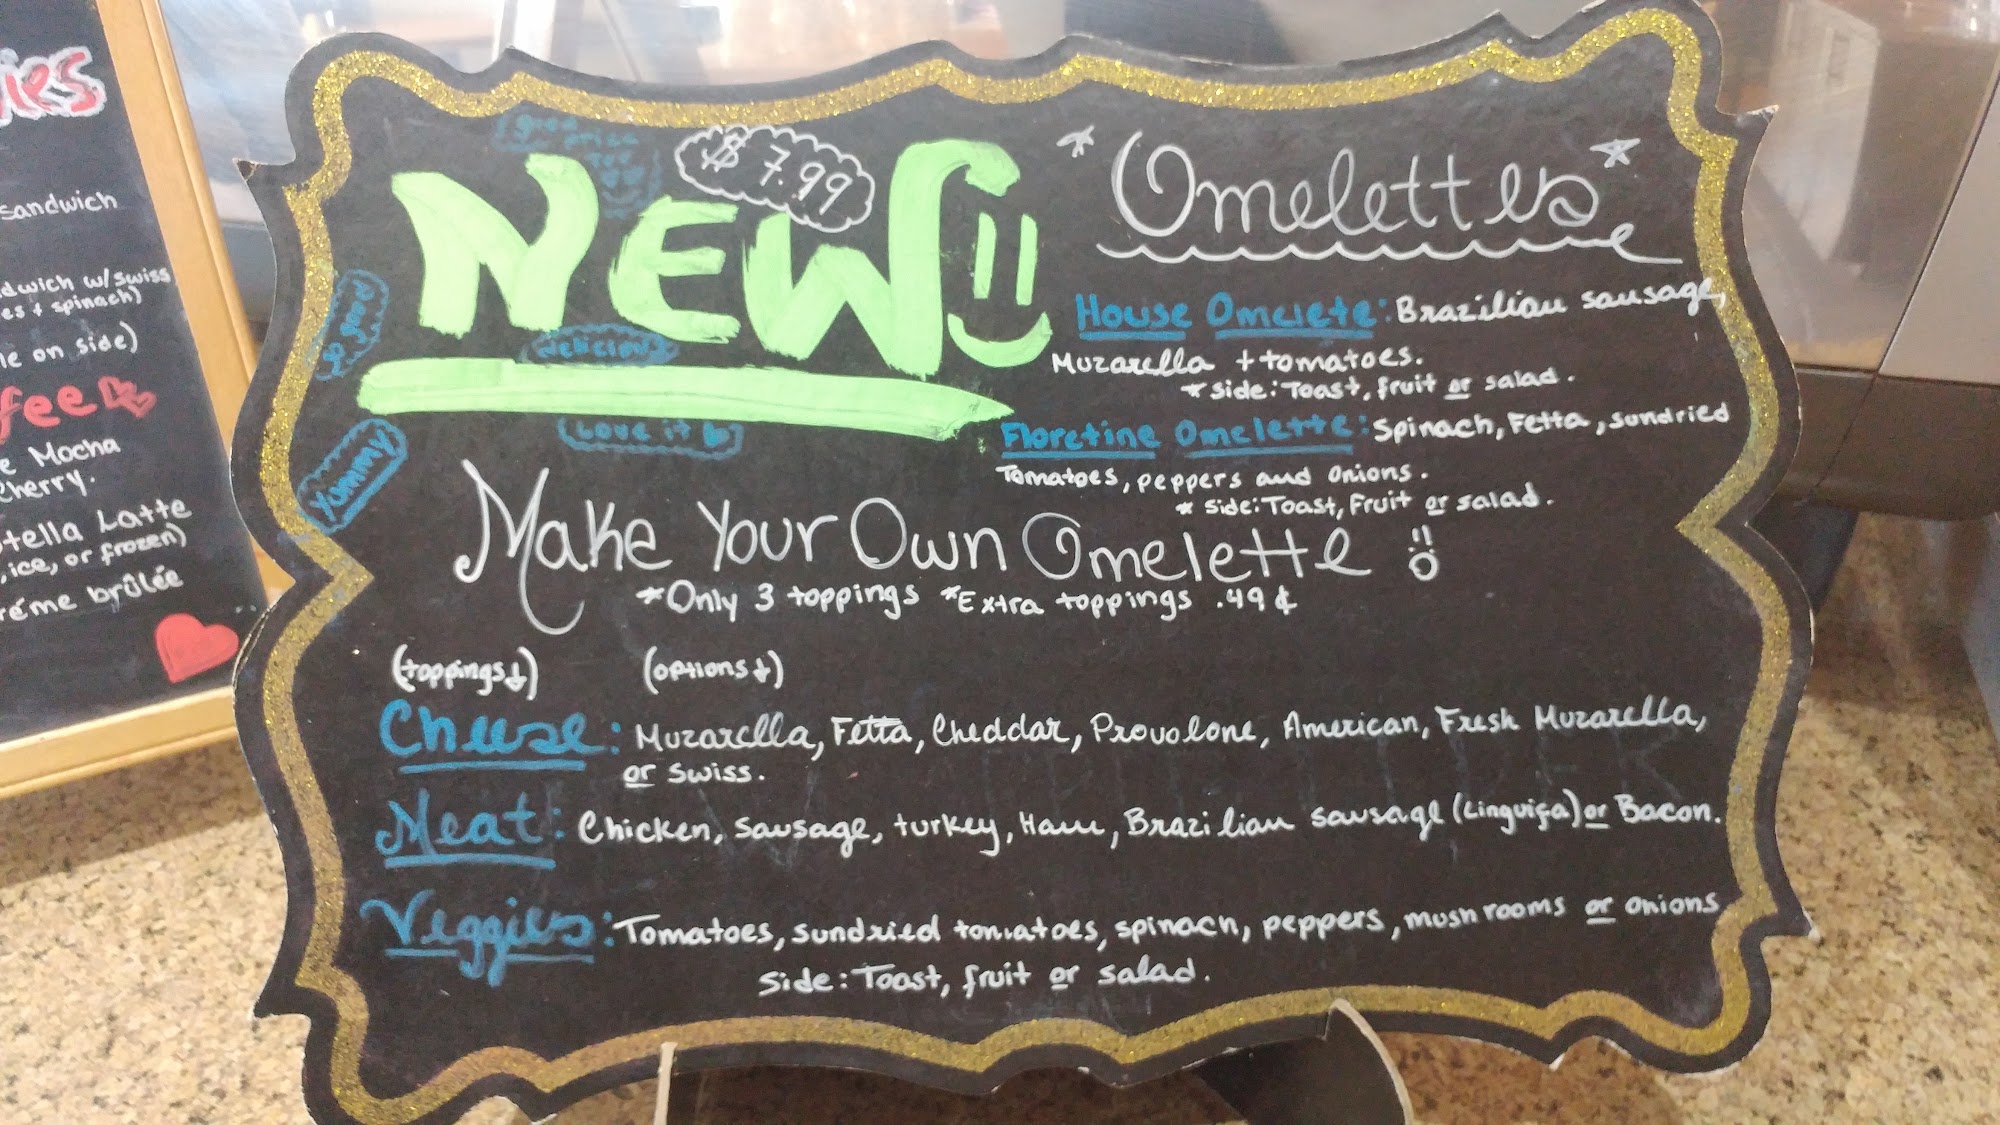 ies
sandwich
dwich w/swiss,
es + spinach)
le on side)
fee
e Mocha
cherry.
tella Latte
, ice, or frozen)
réme brûlée
good
price
$7.99
NEW
So good
Delicious
Love it
Yummy
*Omelettes*
House Omelete: Brazilian sausage,
Muzarella + tomatoes.
* Side: Toast, fruit or salad.
Floretine Omelette: Spinach, Fetta, sundried
Tomatoes, peppers and onions.
* Side: Toast, Fruit or salad.
Make Your Own Omelette
*Only 3 toppings *Extra toppings .49¢
(toppings↓) (options↓)
Cheese: Muzarella, Fetta, Cheddar, Provolone, American, Fresh Muzarella,
or Swiss.
Meat: Chicken, Sausage, turkey, Ham, Brazilian sausage (Linguiça) or Bacon.
Veggies: Tomatoes, sundried tomatoes, spinach, peppers, mushrooms or onions
Side: Toast, fruit or salad.